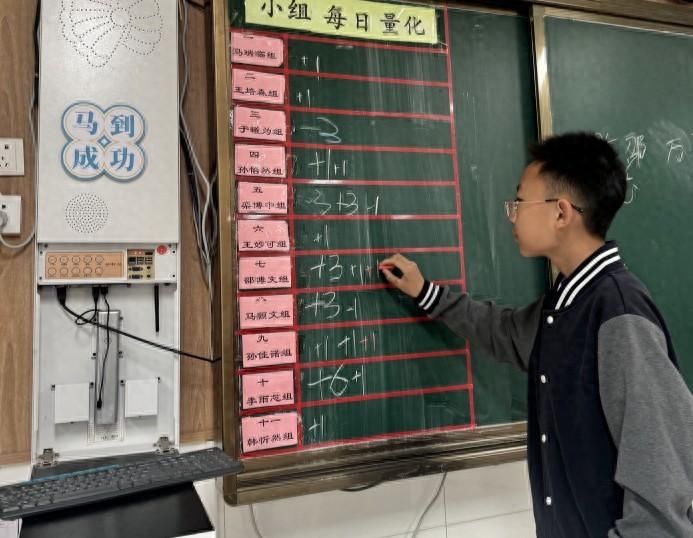 小组 每日量化
马到
成功
一
冯瑞临组
+1
二
王培森组
+1
三
于曦为组
-3
四
孙怡然组
+1+1
五
栾博中组
-3+3-1
六
王妙可组
+1
七
邵博文组
+3+1+
八
马颢文组
+3-1
九
孙佳诺组
+1 +1+1
十
李雨芯组
+6+1
十一
韩忻然组
+1
邵 万